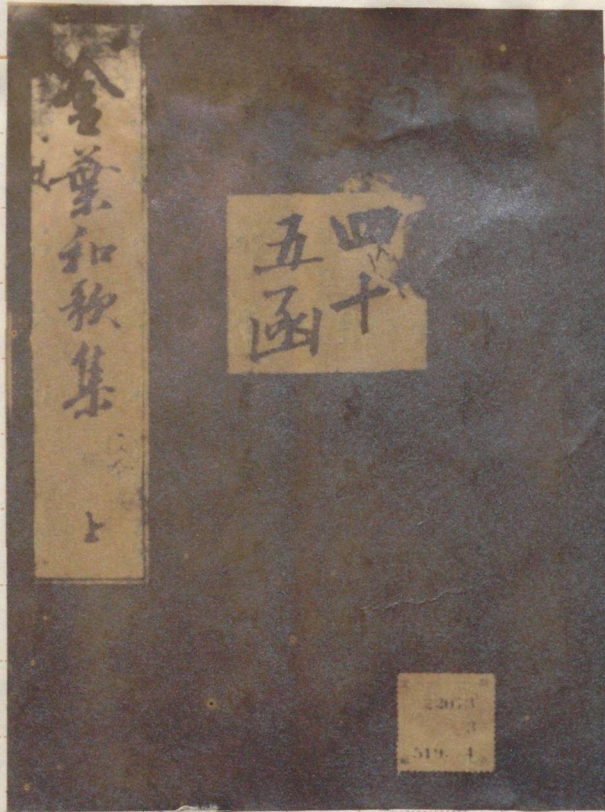 金葉和歌集
上
四十
五函
3
519. 4